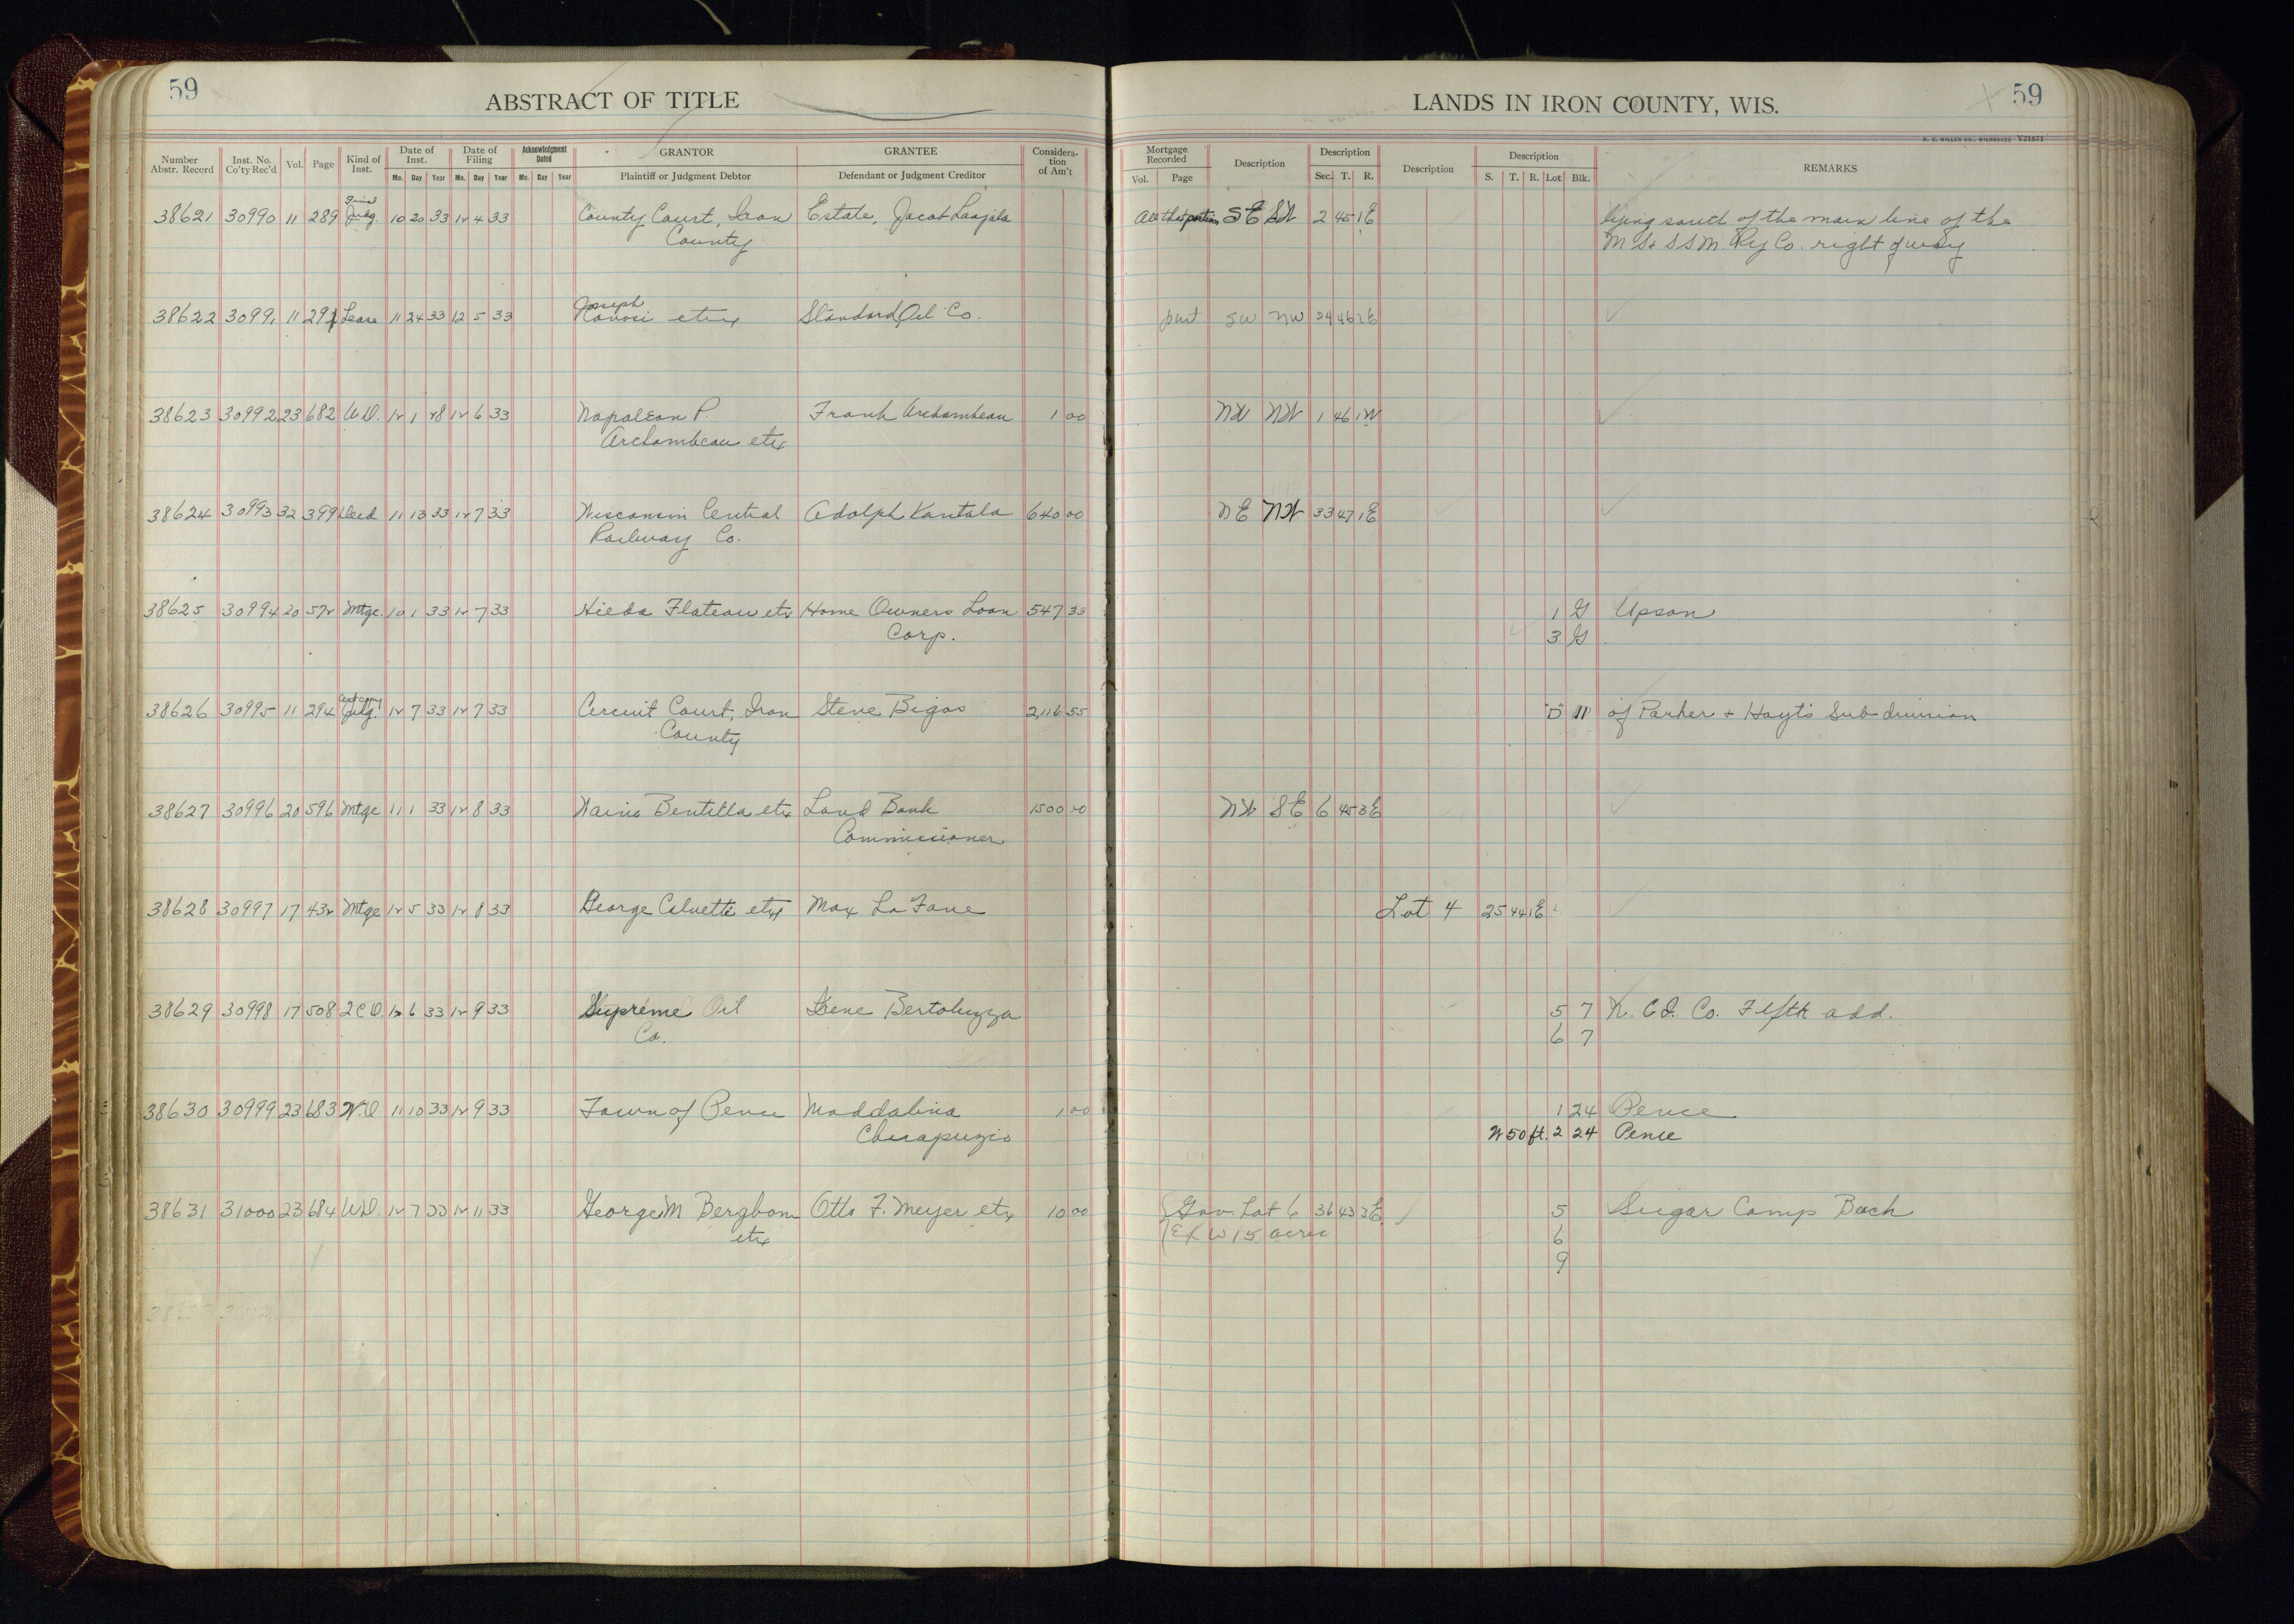 59
ABSTRACT OF TITLE
LANDS IN IRON COUNTY, WIS.
59
H. C. MILLER CO., MILWAUKEE Y21671
Number Abstr. Record
Inst. No. Co'ty Rec'd
Vol.
Page
Kind of Inst.
Date of Inst.
Mo. Day Year
Date of Filing
Mo. Day Year
Acknowledgment Dated
Mo. Day Year
GRANTOR
Plaintiff or Judgment Debtor
GRANTEE
Defendant or Judgment Creditor
Consideration of Am't
Mortgage Recorded
Vol. Page
Description
Description
Sec. T. R.
Description
Description
S. T. R. Lot Blk.
REMARKS
38621 30990 11 289 Final Judg. 10 20 33 12 4 33 County Court, Iron Estate, Jacob Laajala All that portion SE SW 2 45 1E lying south of the main line of the
County M St & S S M. Ry Co. right of way
38622 30991 11 291 Lease 11 24 33 12 5 33 Joseph
etux Standard Oil Co. part SW NW 24 46 2E
38623 30992 23 682 W.D. 12 1 28 12 6 33 Napoleon P. Frank Archambeau 1 00 NW NW 1 46 1W
Archambeau etux
38624 30993 32 399 Deed 11 13 33 12 7 33 Wisconsin Central Adolph Kantala 640 00 NE NW 33 47 1E
Railway Co.
38625 30994 20 572 Mtge. 10 1 33 12 7 33 Hilda Flateau etx Home Owners Loan 547 33 1 G Upson
Corp. 3 G
38626 30995 11 294 Cert copy Judg. 12 7 33 12 7 33 Circuit Court, Iron Steve Bigos 2,116 55 "D" 11 of Parker & Hoyt's Subdivision
County
38627 30996 20 596 Mtge 11 1 33 12 8 33 Waino Bentilla etx Land Bank 1500 00 NW SE 6 45 3E
Commissioner
38628 30997 17 432 Mtge 12 5 33 12 8 33 George etux Max La Fave Lot 4 25 44 1E
38629 30998 17 508 2 C D. 12 6 33 12 9 33 Supreme Oil Irene Bertoluzza 5 7 N. C I. Co. Fifth add.
Co. 6 7
38630 30999 23 683 W.D 11 10 33 12 9 33 Town of Pence Maddalina 1 00 1 24 Pence
W 50 ft. 2 24 Pence
38631 31000 23 684 W.D. 12 7 33 12 11 33 George M Bergbom Otto F. Meyer etx 10 00 Gov. Lot 6 36 43 3E 5 Sugar Camp Bech
etx Ex W 15 acres 6
9